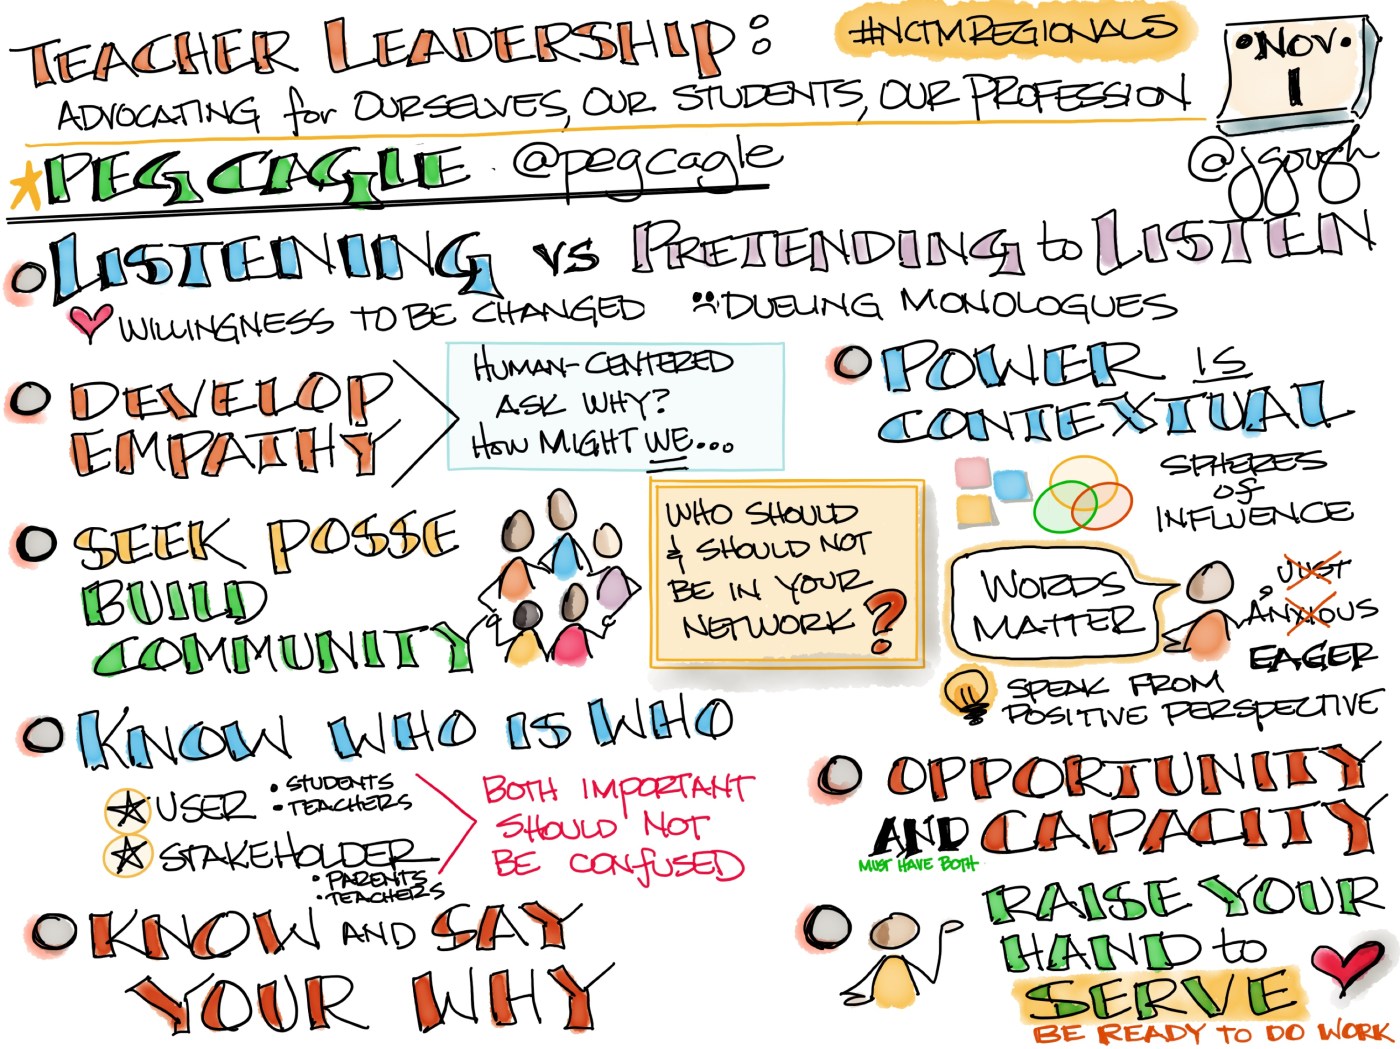 TEACHER LEADERSHIP:
#NCTMREGIONALS
•NOV•
1
ADVOCATING for OURSELVES, OUR STUDENTS, OUR PROFESSION
PEG CAGLE . @pegcagle
@jgough
LISTENING vs PRETENDING to LISTEN
WILLINGNESS TO BE CHANGED
DUELING MONOLOGUES
DEVELOP
EMPATHY
HUMAN-CENTERED
ASK WHY?
HOW MIGHT WE...
SEEK POSSE
BUILD
COMMUNITY
WHO SHOULD
& SHOULD NOT
BE IN YOUR
NETWORK?
KNOW WHO IS WHO
USER
• STUDENTS
• TEACHERS
STAKEHOLDER
• PARENTS
• TEACHERS
BOTH IMPORTANT
SHOULD NOT
BE CONFUSED
KNOW AND SAY
YOUR WHY
POWER IS
CONTEXTUAL
SPHERES
OF
INFLUENCE
WORDS
MATTER
JUST
ANXIOUS
EAGER
SPEAK FROM
POSITIVE PERSPECTIVE
OPPORTUNITY
AND CAPACITY
MUST HAVE BOTH
RAISE YOUR
HAND to
SERVE
BE READY TO DO WORK